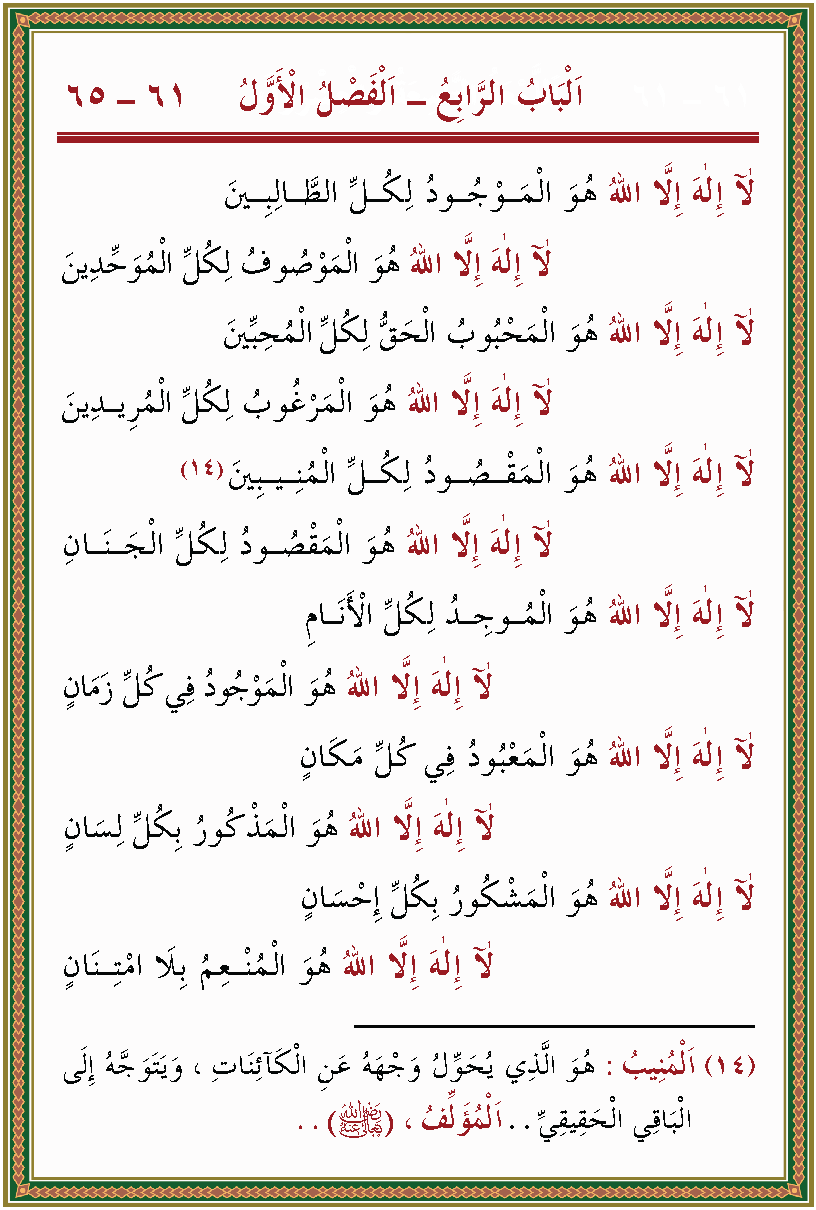 اَلْبَابُ الرَّابِعُ – اَلْفَصْلُ الْأَوَّلُ ٦١ – ٦٥
لَآ إِلٰهَ إِلَّا اللهُ هُوَ الْمَوْجُودُ لِكُلِّ الطَّالِبِينَ
لَآ إِلٰهَ إِلَّا اللهُ هُوَ الْمَوْصُوفُ لِكُلِّ الْمُوَحِّدِينَ
لَآ إِلٰهَ إِلَّا اللهُ هُوَ الْمَحْبُوبُ الْحَقُّ لِكُلِّ الْمُحِبِّينَ
لَآ إِلٰهَ إِلَّا اللهُ هُوَ الْمَرْغُوبُ لِكُلِّ الْمُرِيدِينَ
لَآ إِلٰهَ إِلَّا اللهُ هُوَ الْمَقْصُودُ لِكُلِّ الْمُنِيبِينَ (١٤)
لَآ إِلٰهَ إِلَّا اللهُ هُوَ الْمَقْصُودُ لِكُلِّ الْجَنَانِ
لَآ إِلٰهَ إِلَّا اللهُ هُوَ الْمُوجِدُ لِكُلِّ الْأَنَامِ
لَآ إِلٰهَ إِلَّا اللهُ هُوَ الْمَوْجُودُ فِي كُلِّ زَمَانٍ
لَآ إِلٰهَ إِلَّا اللهُ هُوَ الْمَعْبُودُ فِي كُلِّ مَكَانٍ
لَآ إِلٰهَ إِلَّا اللهُ هُوَ الْمَذْكُورُ بِكُلِّ لِسَانٍ
لَآ إِلٰهَ إِلَّا اللهُ هُوَ الْمَشْكُورُ بِكُلِّ إِحْسَانٍ
لَآ إِلٰهَ إِلَّا اللهُ هُوَ الْمُنْعِمُ بِلَا امْتِنَانٍ
(١٤) اَلْمُنِيبُ : هُوَ الَّذِي يُحَوِّلُ وَجْهَهُ عَنِ الْكَآئِنَاتِ ، وَيَتَوَجَّهُ إِلَى
الْبَاقِي الْحَقِيقِيِّ . . اَلْمُؤَلِّفُ ، (رَضِيَ اللهُ تَعَالَى عَنْهُ) . .